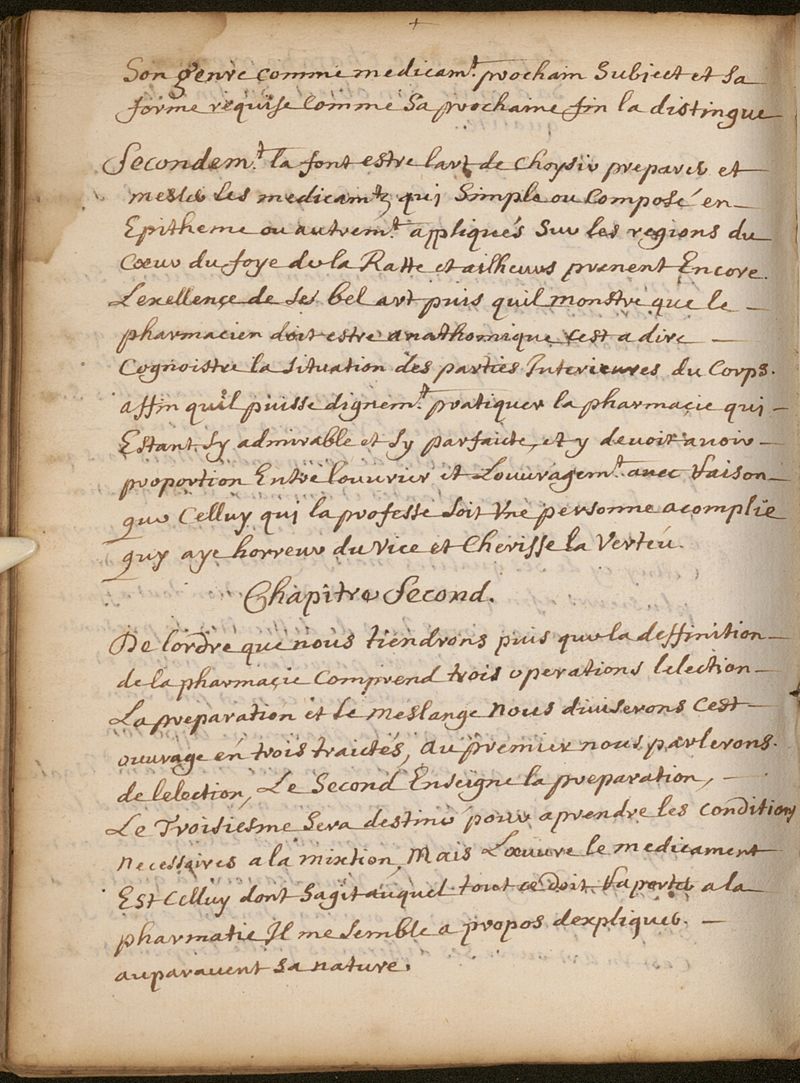 +
Son genre comme medicamt. prochain Subiect et sa
forme requise comme sa prochaine fin la distingue
Secondemt. la font estre lart de choysir preparer et
mesler les medicamts, qui Simple ou Composé en
Epitheme ou autremt. appliqués Sur les regions du
Cœur du foye de la Ratte et ailheurs prenent Encore
Lexellençe de ses bel art puis quil monstre que le
pharmacien doit estre anathomique cest a dire
Cognoistre la situation des parties Interieures du Corps.
affin quil puisse dignemt. pratiquer la pharmaçie qui
Estant sy admirable et sy parfaicte, et y devoir avoir
proportion Entre louvrier et Louvragemt. avec raison
que Celluy qui la professe soit Une personne acomplie
quy aye horreur du Vice et Cherisse la Verteu.
Chapitre Second.
De lordre que nous tiendrons puis que la deffinition
de la pharmaçie Comprend trois operations lelection
La preparation et le meslange nous diuiserons cest
ouvrage en trois traictés, au premier nous parlerons
de lelection, Le Second Enseigne la preparation,
Le Troisiesme Sera destiné pour aprendre les conditions
necessaires a la mixtion, Mais Lœuvre le medicament
Est Celluy dont Sagit auquel tout ce doit raporter a la
pharmatie Il me semble a propos dexpliquer
auparavent sa nature.